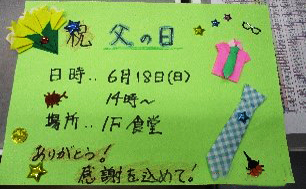 祝 父の日
日時‥6月18日(日)
14時～
場所‥1F食堂
ありがとう!
感謝を込めて!